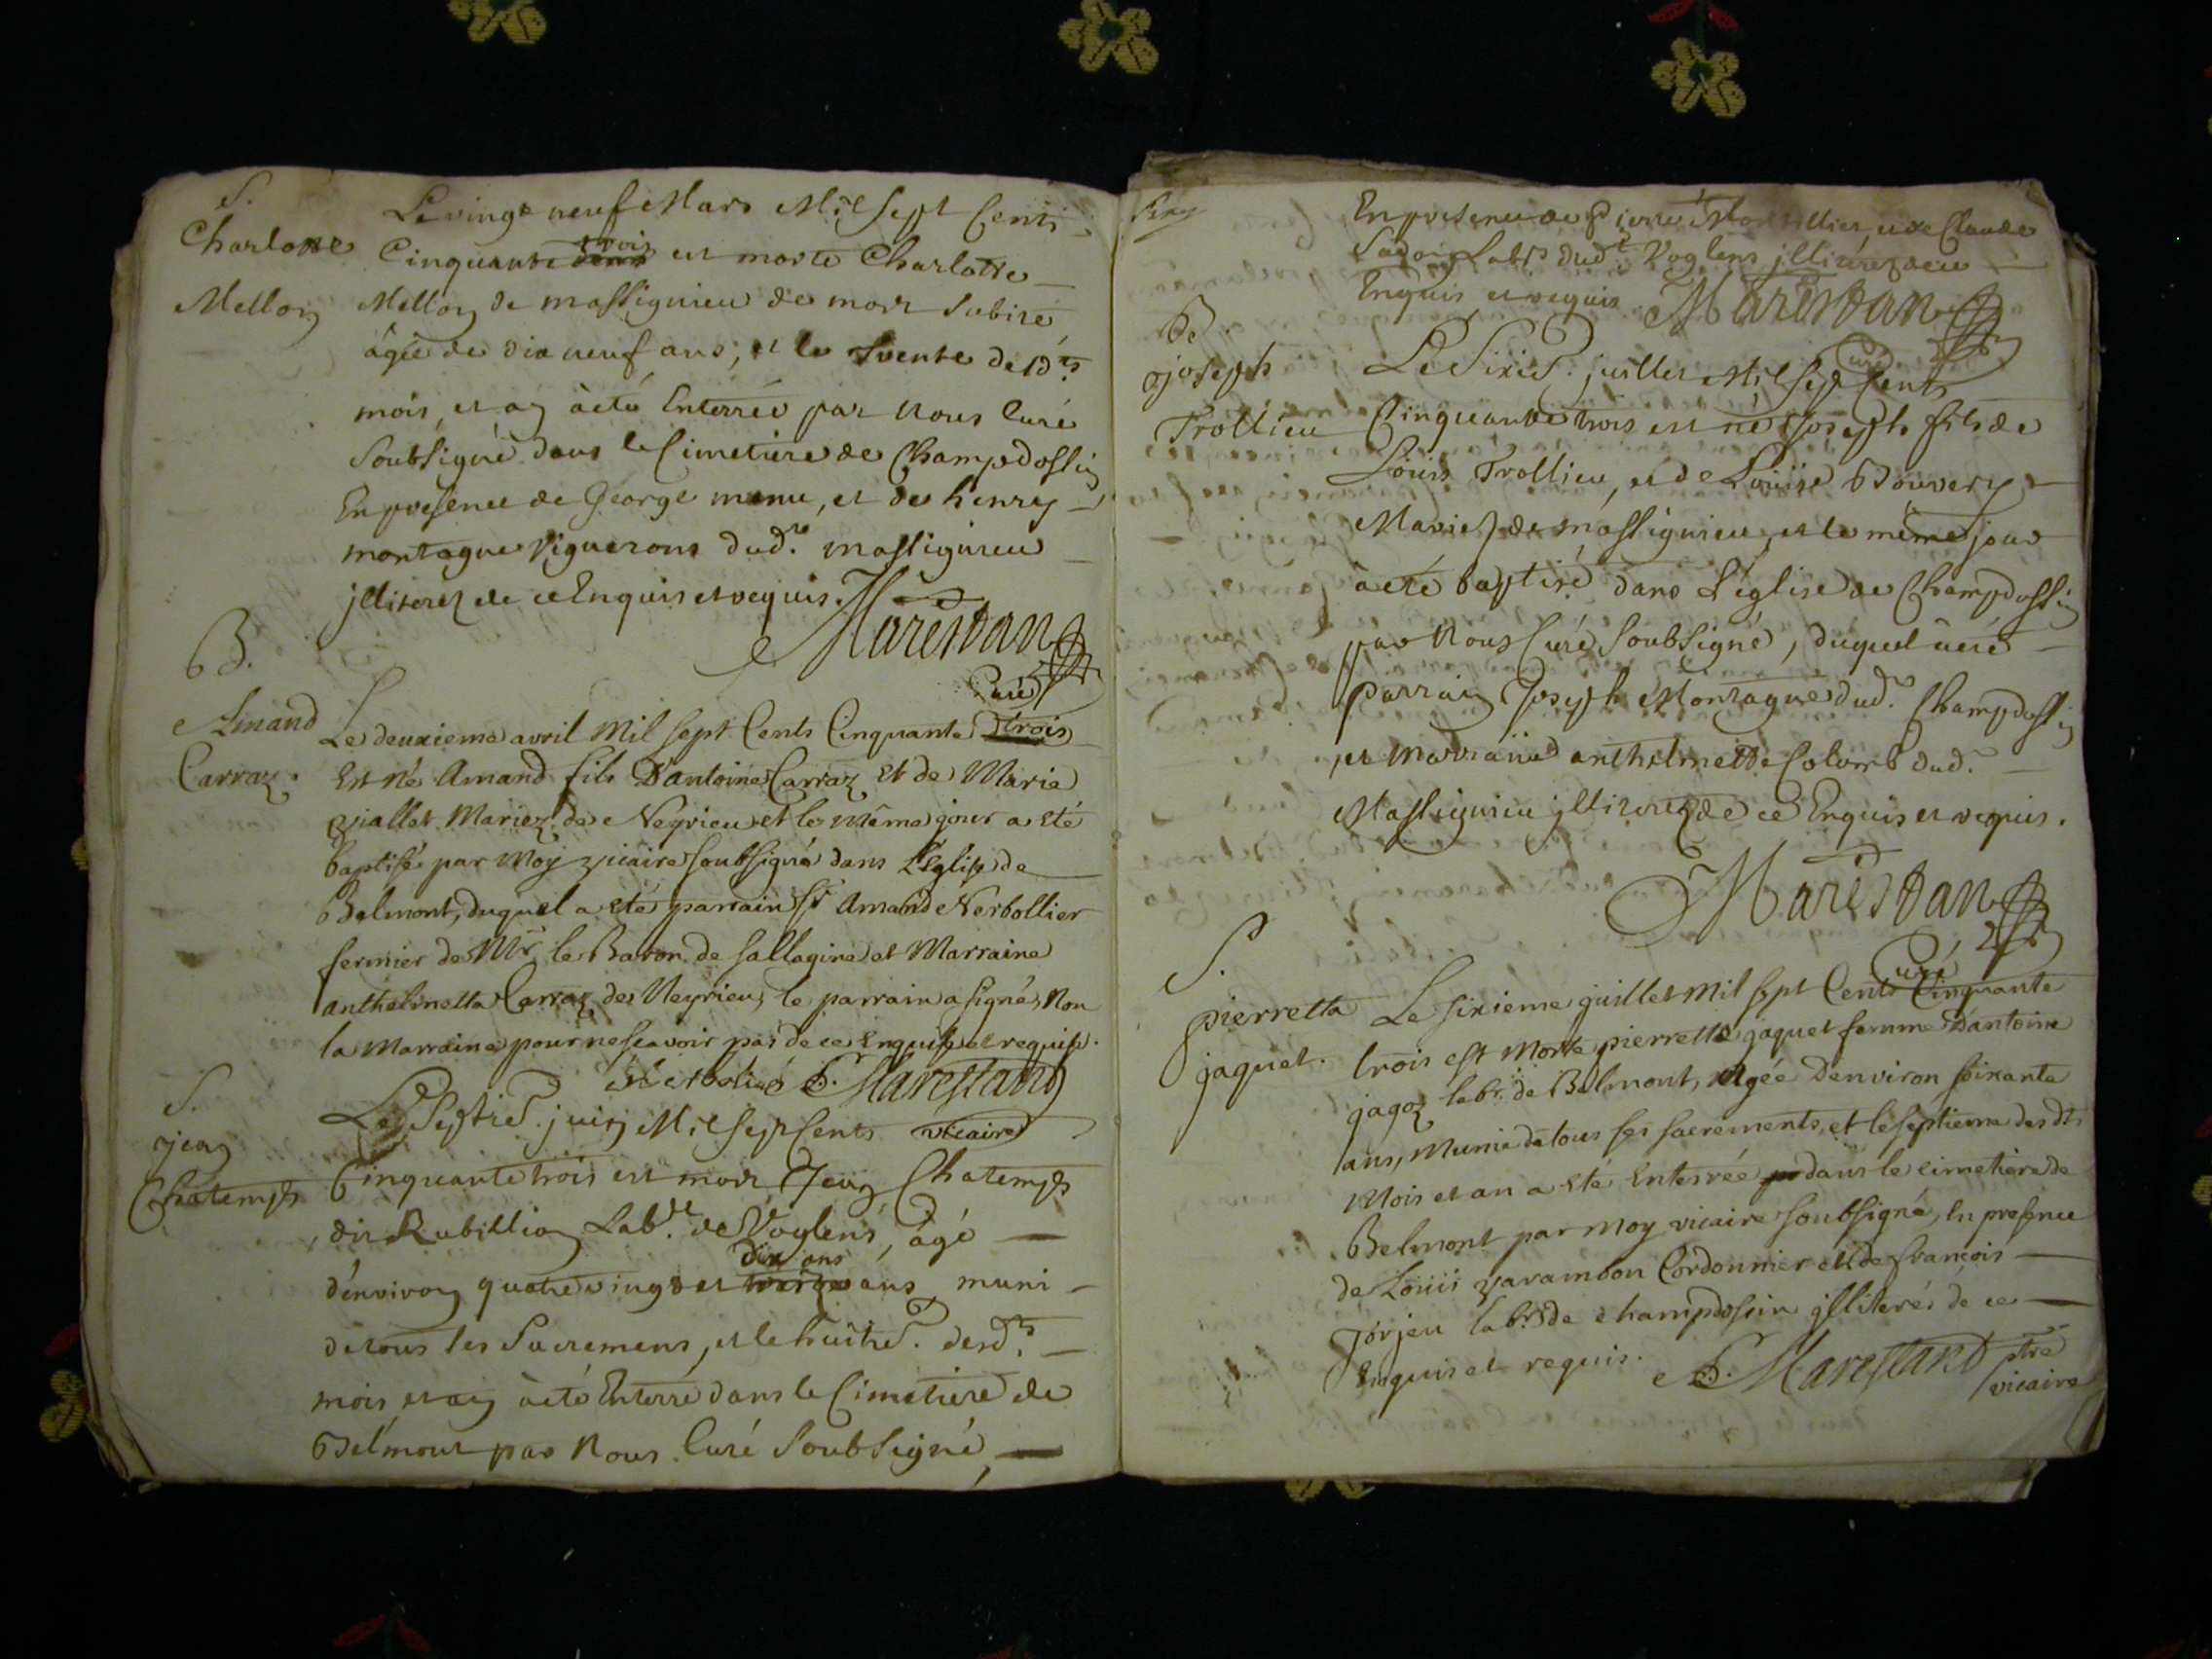 S.
Charlotte
Mellon
Le vingt neuf Mars Mil Sept Cents
trois
Cinquante deux est morte Charlotte
Mellon de massignieu de mort Subite
âgée de dix neuf ans, et le trente desd.ts
mois et an à été Enterrée par Nous Curé
Soubsigné dans le Cimetiere de Champdossin
En presence de George menu, et de henry
montagne Vignerons dud.t massignieu
jlliterez de ce Enquis et requis. Marestan
Curé
B.
Amand
Carraz.
Le deuxieme avril Mil sept Cents Cinquante trois
Est né Amand fils D'antoine Carraz Et de Marie
Viallet Mariez de Neyrieu et le même jour a eté
baptisé par Moy vicaire soubsigné dans L'Eglise de
Belmont, duquel a eté parrain Sr Amand Nerbollier
fermier de Mr le Baron de sallagine et Marraine
anthelmette Carraz de Neyrieu, le parrain a signé, Non
la Marraine pour ne scavoir pas de ce Enquise et requise.
Nerbolier B. Marestand
vicaire
S.
jean
Chatemps
Le Septie. juin Mil Sept Cents
Cinquante trois est mort Jean Chatemps
dit Rubillion Lab.r de Voglens, âgé
dix ans
d'environ quatre vingt et ans, muni
de tous les Sacremens, et le huitie. desd.ts
mois et an à été Enterré dans le Cimetiere de
Belmont par Nous Curé Soubsigné,
En presence de Pierre et de Claude
Labrs dud.t Voglens jlliterez de ce
Enquis et requis Marestan
Curé
B.
joseph
Trollieu
Le Sixie. juillet Mil Sept Cents
Cinquante trois est né Joseph fils de
Louis Trollieu, et de Louise Bouvery
Mariez de massignieu, et le même jour
à eté baptisé dans L'église de Champdossin
par Nous Curé Soubsigné, duquel à eté
parrain Joseph Montagne dud.t Champdossin
et marraine anthelmette Colomb dud.t
Massignieu jlliterez de ce Enquis et requis.
Marestan
Curé
S.
pierrette
jaquet.
Le sixieme juillet Mil sept Cents Cinquante
trois est Morte pierrette jaquet femme D'antoine
jagoz labr. de Belmont, Agée D'environ soixante
ans, Munie de tous ses sacrements, et le septieme desdts
Mois et an a eté Enterrée dans le cimetiere de
Belmont par moy vicaire soubsigné, En presence
de Louis varambon Cordonnier et de françois
Torjeu labr. de champdossin jlliterés de ce
Enquis et requis. B. Marestand ptre
vicaire